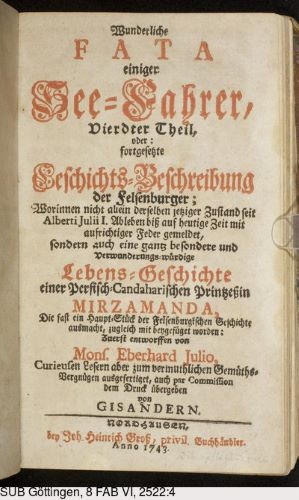 Wunderliche
FATA
einiger
See=Fahrer,
Vierdter Theil,
oder:
fortgesetzte
Geschichts=Beschreibung
der Felsenburger;
Worinnen nicht allein derselben jetziger Zustand seit
Alberti Julii I. Ableben biß auf heutige Zeit mit
aufrichtiger Feder gemeldet,
sondern auch eine gantz besondere und
Verwunderungs=würdige
Lebens=Geschichte
einer Persisch=Candaharischen Printzeßin
MIRZAMANDA,
Die fast ein Haupt=Stück der Felsenburgischen Geschichte
ausmacht, zugleich mit beygefüget worden:
Zuerst entworffen von
Mons. Eberhard Julio,
Curieusen Lesern aber zum vermuthlichen Gemüths=
Vergnügen ausgefertiget, auch par Commission
dem Druck übergeben
von
GISANDERN.
NORDHAUSEN,
bey Joh. Heinrich Groß, privil. Buchhändler.
Anno 1743.
SUB Göttingen, 8 FAB VI, 2522:4